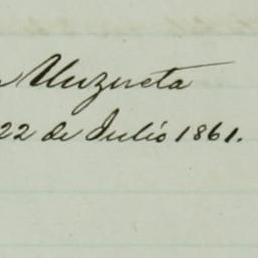 Unzueta
22 de Julio 1861.